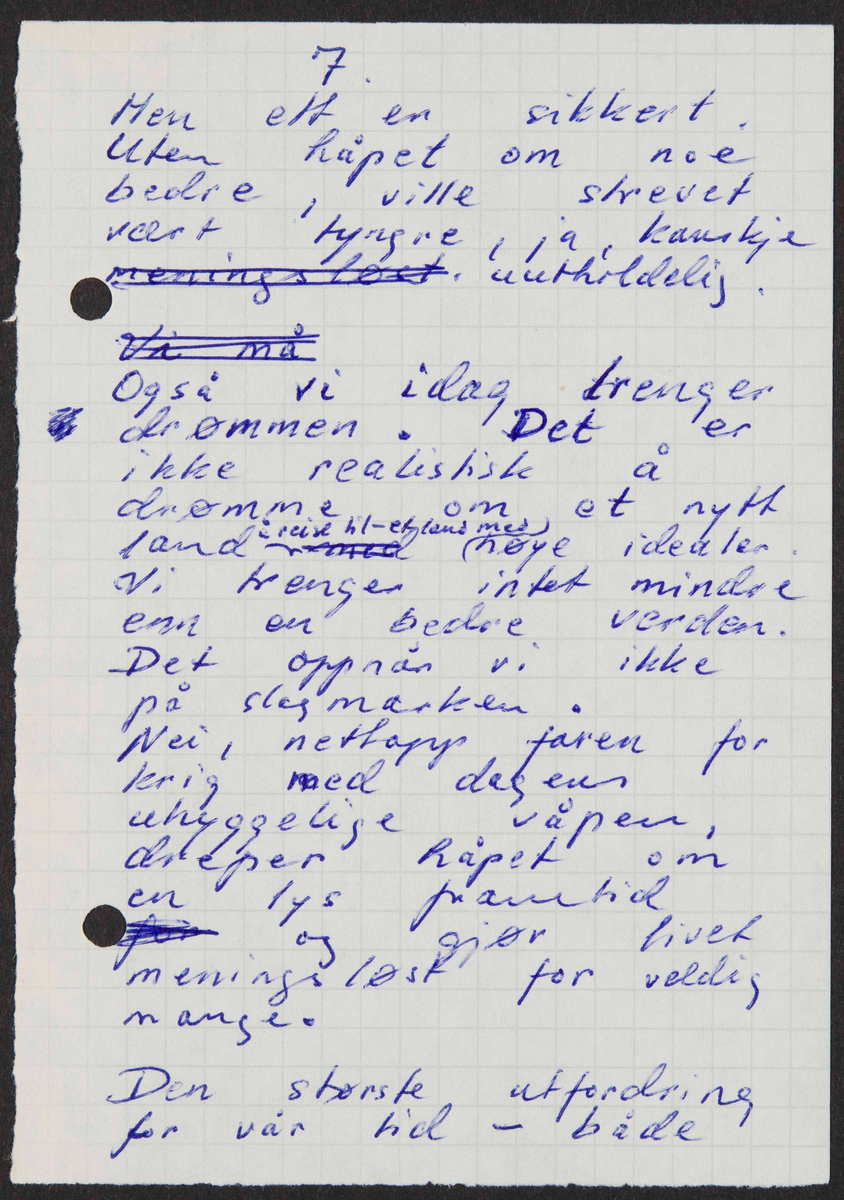 7.
Men ett er sikkert.
Uten håpet om noe
bedre, ville strevet
vært tyngre, ja, kanskje
meningsløst. uutholdelig.
Vi må
Også vi idag trenger
drømmen. Det er
ikke realistisk å
drømme om et nytt
å reise til - et land med
land med høye idealer.
Vi trenger intet mindre
enn en bedre verden.
Det oppnår vi ikke
på slagmarken.
Nei, nettopp faren for
krig med dagens
uhyggelige våpen,
dreper håpet om
en lys framtid
for og gjør livet
meningsløst for veldig
mange.
Den største utfordring
for vår tid - både